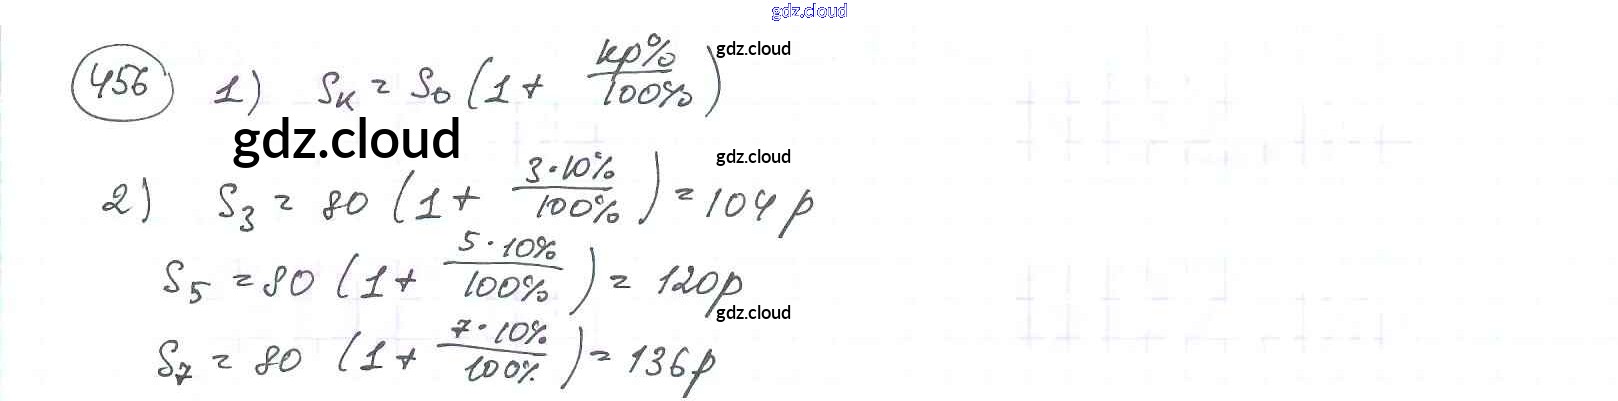 gdz.cloud
456 1) Sк = S₀ (1 + кр%/100%) gdz.cloud
gdz.cloud
2) S₃ = 80 (1 + 3·10%/100%) = 104 р gdz.cloud
S₅ = 80 (1 + 5·10%/100%) = 120р
gdz.cloud
S₇ = 80 (1 + 7·10%/100%) = 136р